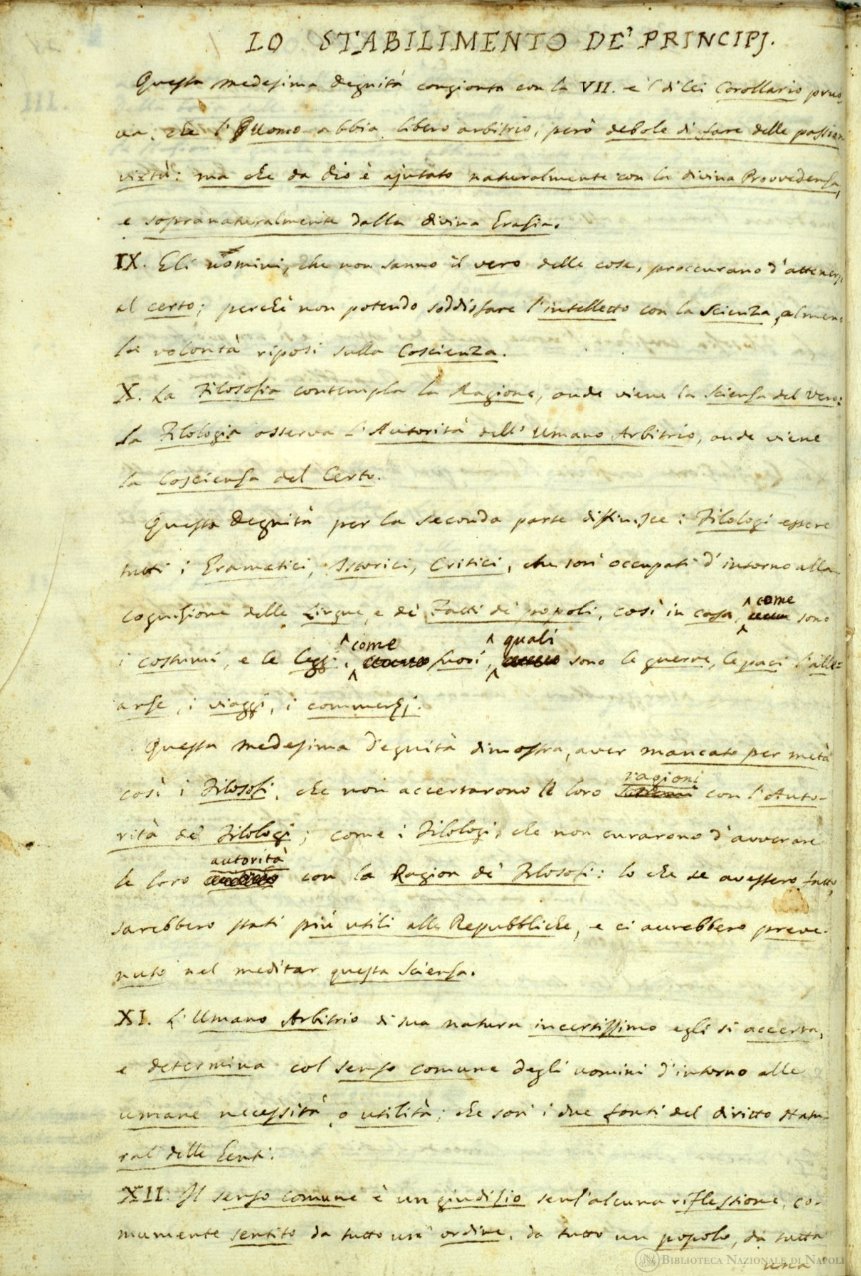 LO STABILIMENTO DE' PRINCIPJ.
Questa medesima degnità congionta con la VII. e 'l di lei Corollario pruo-
va, che l'Huomo abbia libero arbitrio, però debole di fare delle passioni
virtù: ma che da Dio è ajutato naturalmente con la divina Provvedenza,
e sopranaturalmente dalla divina Grazia.
IX. Gli uomini, che non sanno il vero delle cose, proccurano d'attenersi
al certo; perchè non potendo soddisfare l'intelletto con la Scienza, almeno
la volontà riposi sulla Coscienza.
X. La Filosofia contempla la Ragione, onde viene la Scienza del Vero:
la Filologia osserva l'Autorità dell'Umano Arbitrio, onde viene
la Coscienza del Certo.
Questa Degnità per la seconda parte diffinisce i Filologi essere
tutti i Gramatici, Istorici, Critici, che son occupati d'intorno alla
cognizione delle Lingue, e de' Fatti de' popoli, così in casa, come sono
i costumi, e le leggi, come fuori, quali sono le guerre, le paci l'alle=
anze, i viaggi, i commerzj.
Questa medesima degnità dimostra, aver mancato per metà
così i Filosofi, che non accertarono le loro ragioni con l'Auto-
rità de' Filologi; come i Filologi, che non curarono d'avverare
le loro autorità con la Ragion de' Filosofi: lo che se avessero fatto,
sarebbero stati più utili alle Repubbliche, e ci avrebbero preve-
nuto nel meditar questa Scienza.
XI. L'Umano Arbitrio di sua natura incertissimo egli si accerta,
e determina col senso comune degli uomini d'intorno alle
umane necessità, o utilità; che son i due fonti del diritto Natu-
ral delle Genti.
XII. Il senso comune è un giudizio senz'alcuna riflessione, co-
munemente sentito da tutto un ordine, da tutto un popolo, da tutta
una
BIBLIOTECA NAZIONALE DI NAPOLI